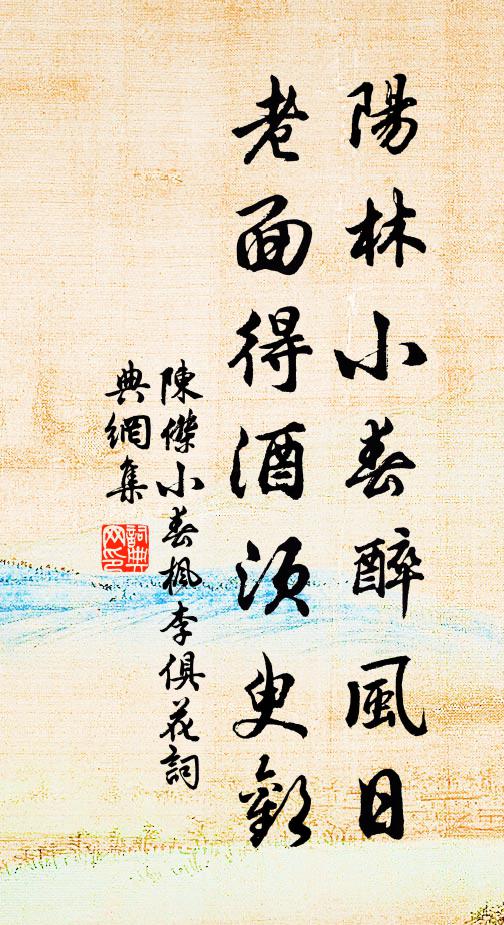 陽林小春醉風日
老面得酒須臾歡
陳傑小春楓李俱花詞
典網集
詞典
网印